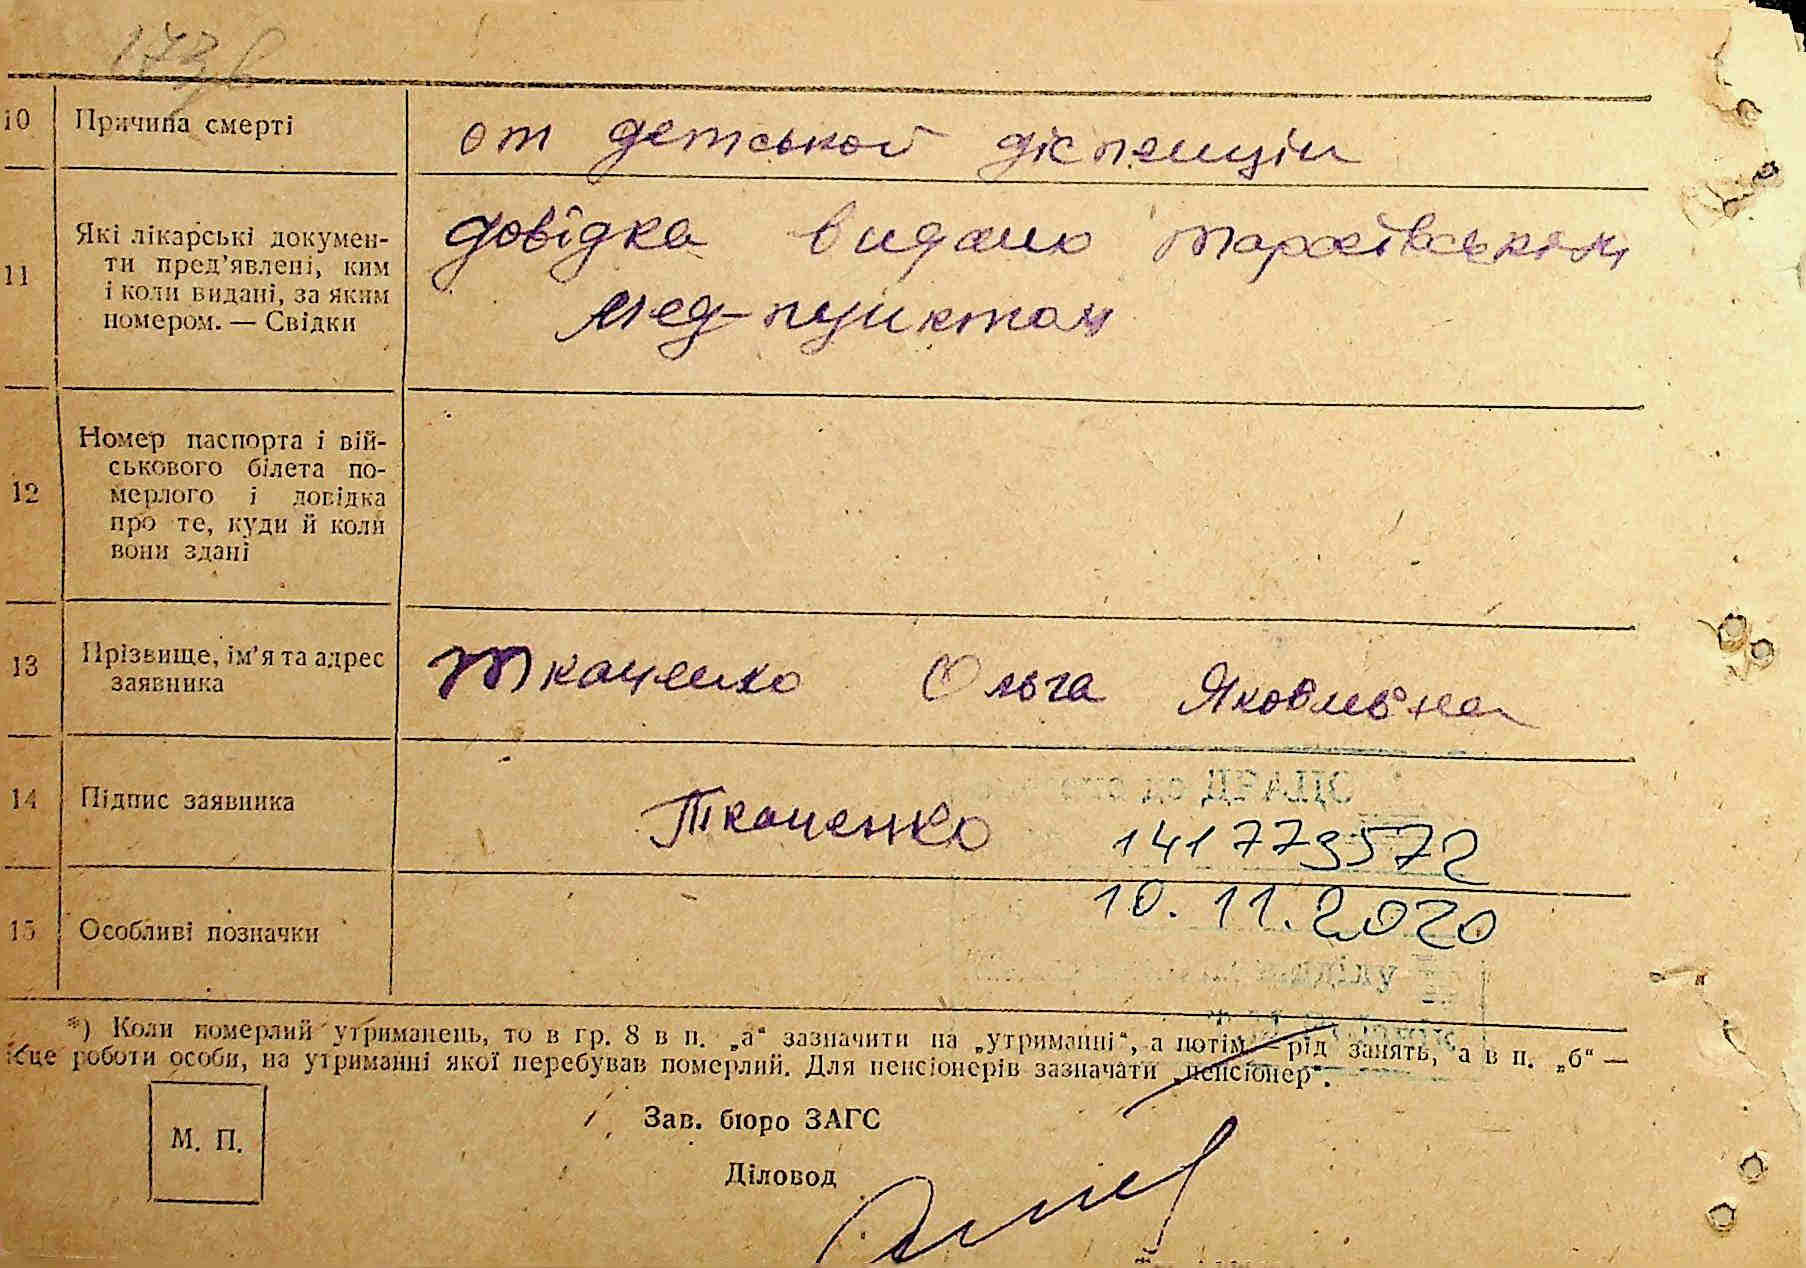 173
10 Причина смерті от детської діспепціи
11 Які лікарські докумен-
ти пред'явлені, ким
і коли видані, за яким
номером. — Свідки
довідка видано
мед-пунктом
12 Номер паспорта і вій-
ськового білета по-
мерлого і довідка
про те, куди й коли
вони здані
13 Прізвище, ім'я та адрес
заявника
Ткаченко Ольга Яковлівна
14 Підпис заявника Ткаченко
141773572
10.11.2020
15 Особливі позначки
відділу
*) Коли померлий утриманець, то в гр. 8 в п. „а“ зазначити на „утриманні“, а потім — рід занять, а в п. „б“ —
місце роботи особи, на утриманні якої перебував померлий. Для пенсіонерів зазначати „пенсіонер“.
М. П.
Зав. бюро ЗАГС
Діловод